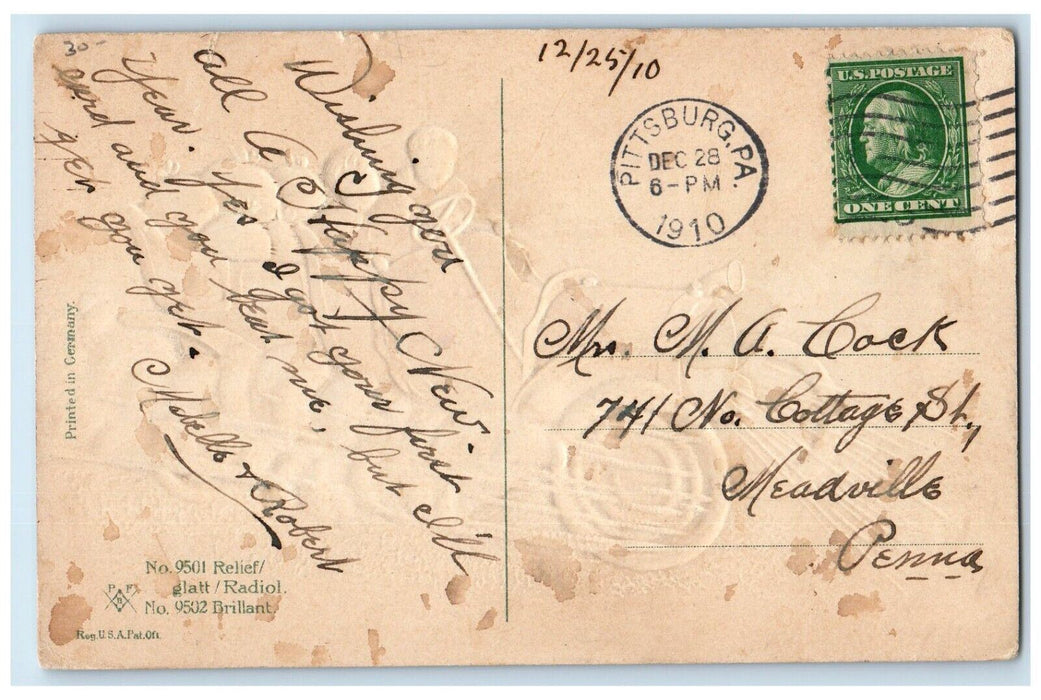 30-
Wishing you
all A Happy New
Year. Yes I got your first
card and you beat me, but I'll
get you yet.
Mabelle & Robert
12/25/10
PITTSBURG, PA.
DEC 28
6-PM
1910
U.S. POSTAGE
ONE CENT
Mrs. M. A. Cock
741 No. Cottage St.,
Meadville
Penna
Printed in Germany.
No. 9501 Relief/
glatt/Radiol.
No. 9502 Brillant.
P F
B
Reg. U.S.A. Pat. Off.